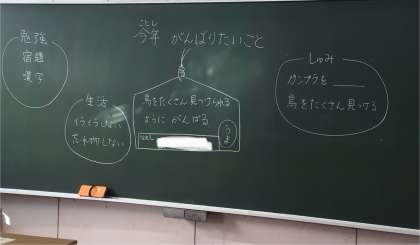 ことし
今年 がんばりたいこと
勉強
宿題
漢字
生活
イライラしない
忘れ物しない
鳥をたくさん見つけられる
ように がんばる
しゅみ
ガンプラを
鳥をたくさん見つける